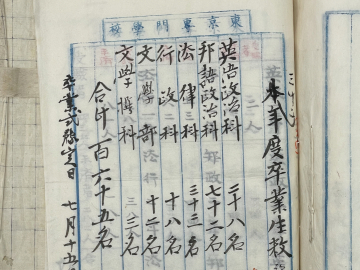 東京專門學校
本年度卒業生数
英語政治科 二十八名
邦語政治科 七十二名
法律三科 三十三名
行政二科 十八名
文學部 十二名
文學 科 名
合計百六十五名
卒業式 定日 七月十五日